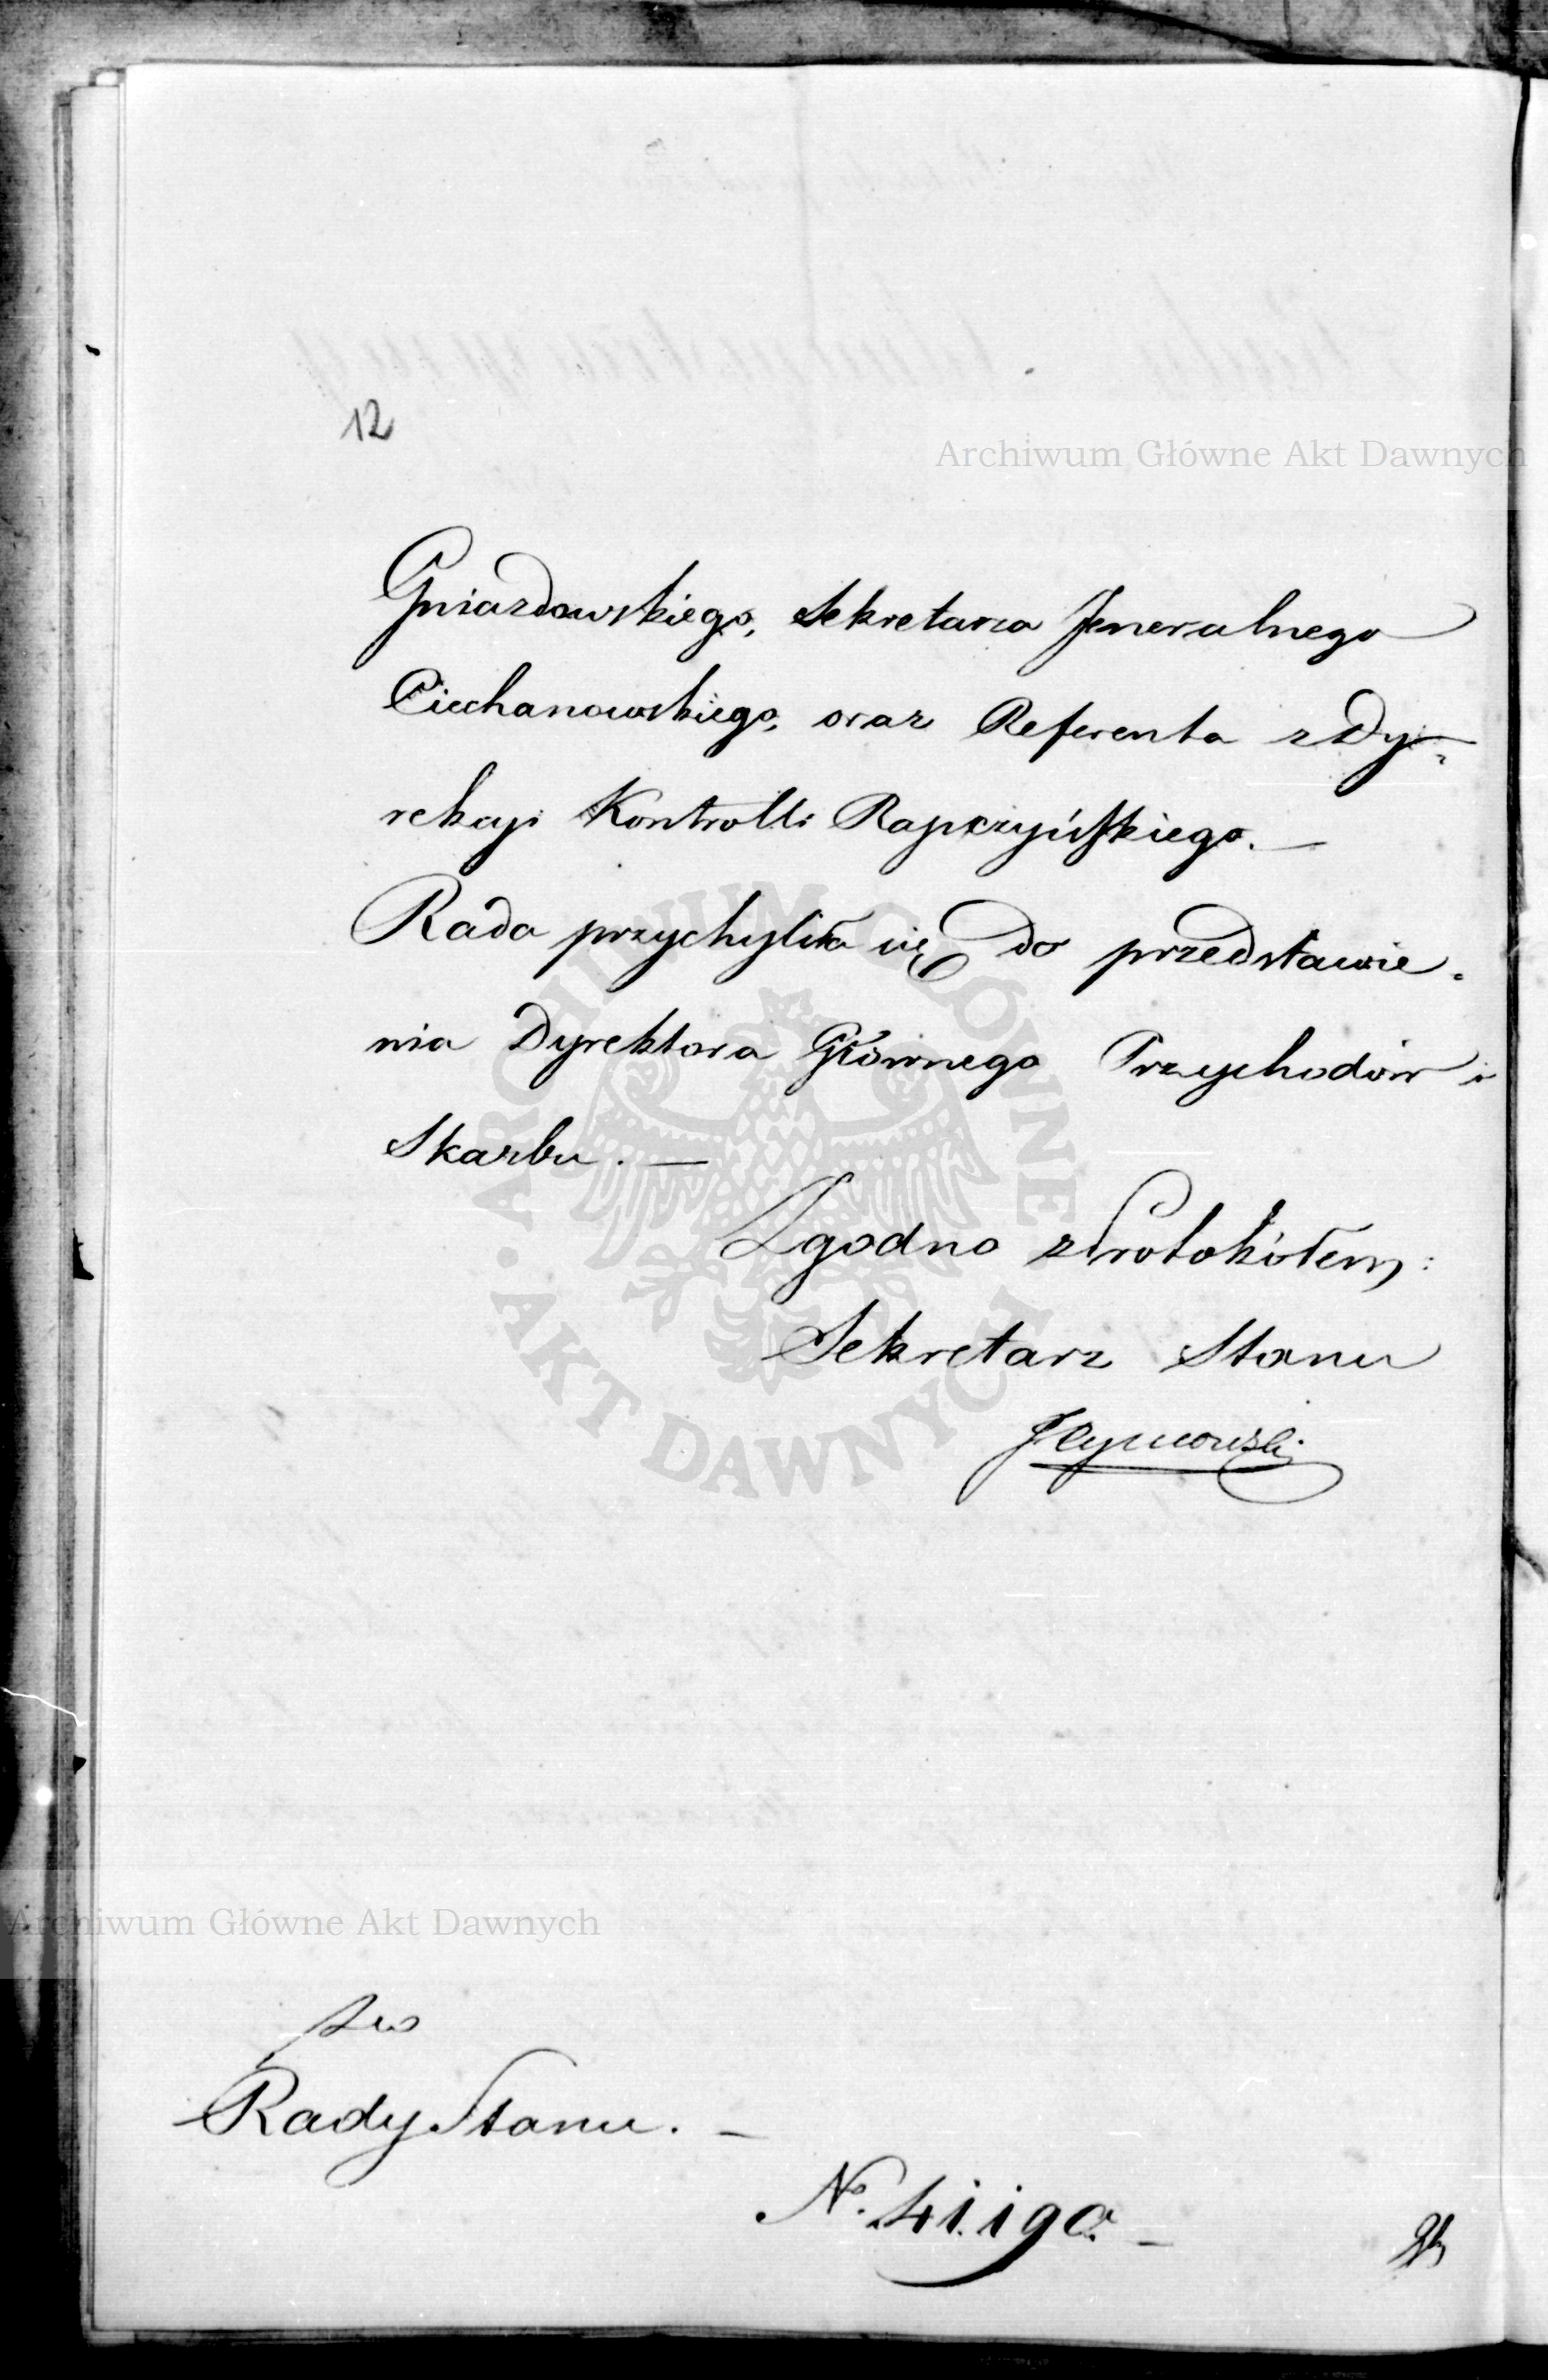 12
Archiwum Główne Akt Dawnych
Gniazdowskiego, Sekretarza Jeneralnego
Ciechanowskiego, oraz Referenta z Dy-
rekcyi Kontrolli Rapczyńskiego. —
Rada przychyliła się do przedstawie-
nia Dyrektora Głównego Przychodów i
Skarbu. —
Zgodno z Protokółem:
Sekretarz Stanu
JTymowski
ARCHIWUM GŁÓWNE • AKT DAWNYCH •
Archiwum Główne Akt Dawnych
do
Rady Stanu. —
No. 41.190. —